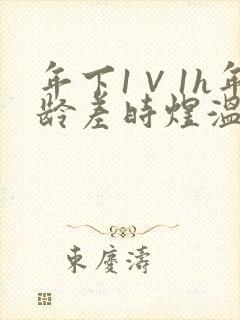 年下1V1h年
龄差时煜温
东庆涛